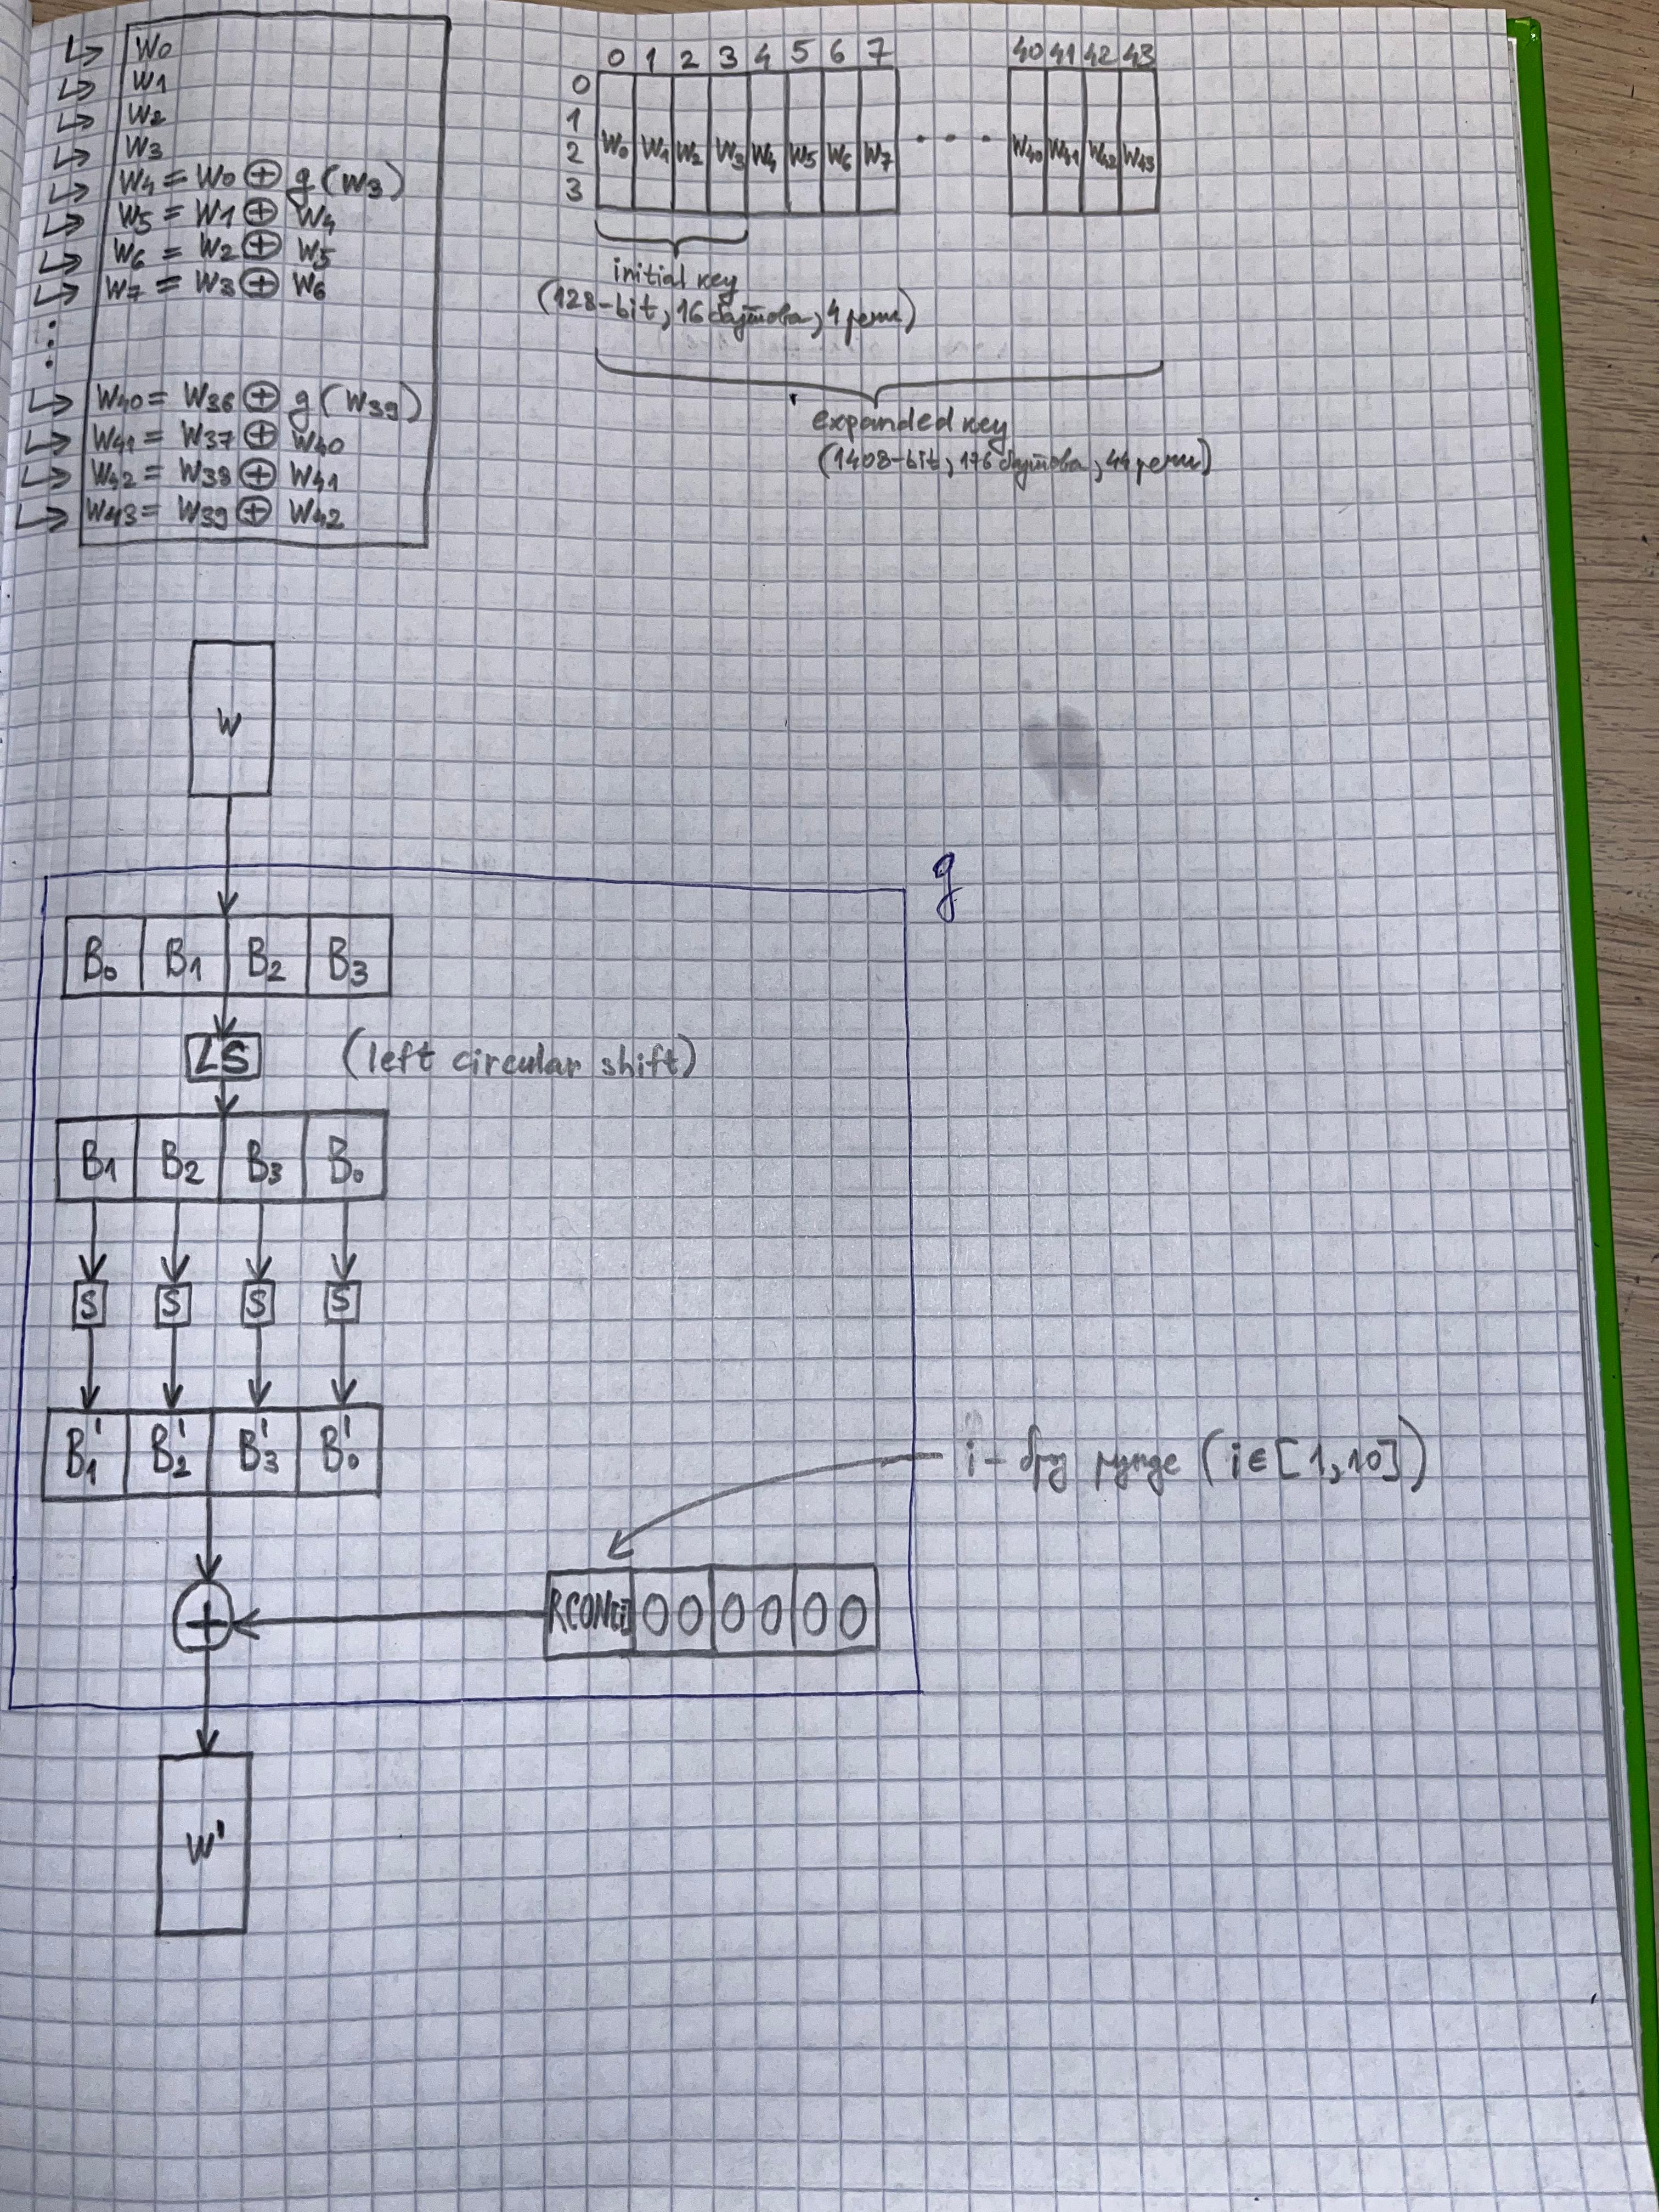 W0
W1
W2
W3
W4 = W0 ⊕ g(W3)
W5 = W1 ⊕ W4
W6 = W2 ⊕ W5
W7 = W3 ⊕ W6
⋮
W40 = W36 ⊕ g(W39)
W41 = W37 ⊕ W40
W42 = W38 ⊕ W41
W43 = W39 ⊕ W42
0 1 2 3 4 5 6 7 40 41 42 43
0
1
2
3
W0 W1 W2 W3 W4 W5 W6 W7 ... W40 W41 W42 W43
initial key
(128-bit, 16 бајтова, 4 речи)
expanded key
(1408-bit, 176 бајтова, 44 речи)
W
g
B0 B1 B2 B3
LS (left circular shift)
B1 B2 B3 B0
S S S S
B1' B2' B3' B0'
i - бр рунде (i∈[1,10])
+ RCON[i] 00 00 00
W'